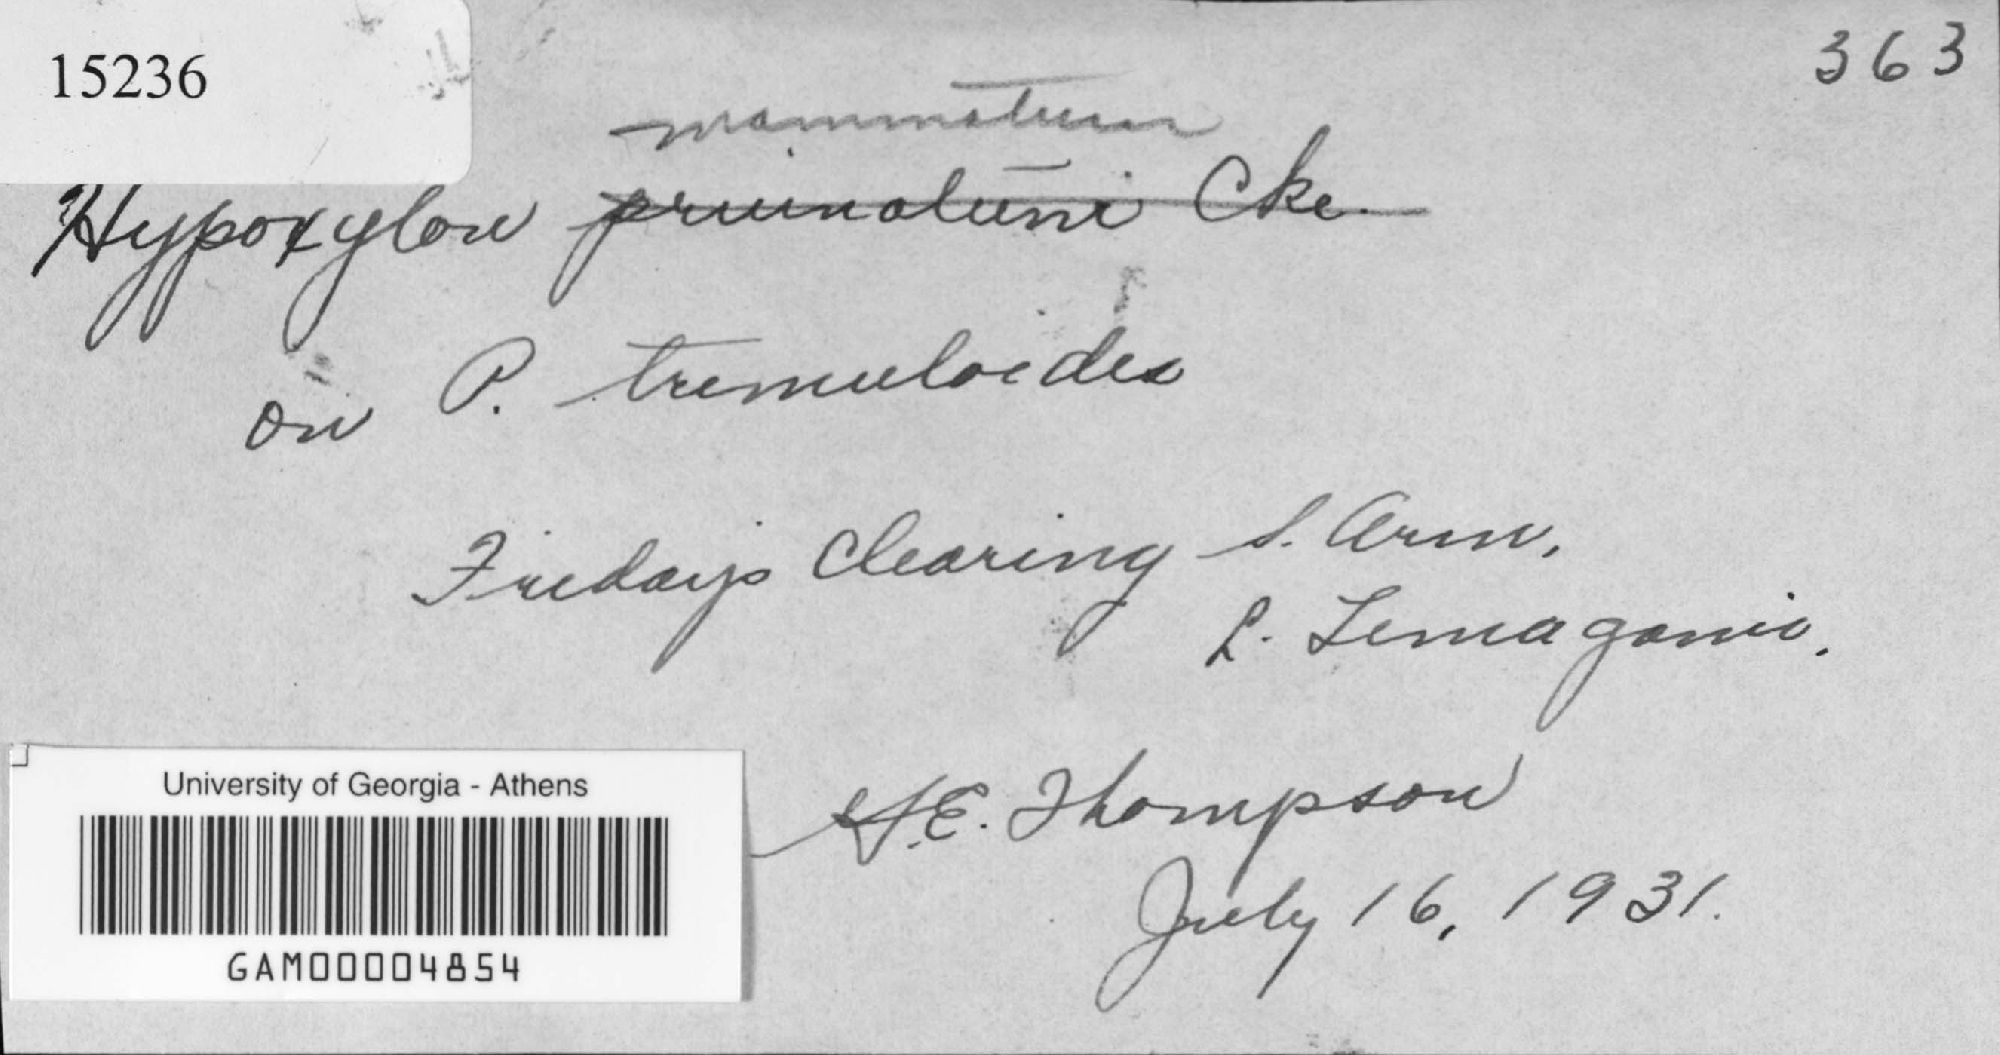 15236
363
mammatum
Hypoxylon pruinatum Cke.
on P. tremuloides
Friday's Clearing S. Arm,
L. Temagami.
G.E. Thompson
July 16, 1931.
University of Georgia - Athens
GAM00004854